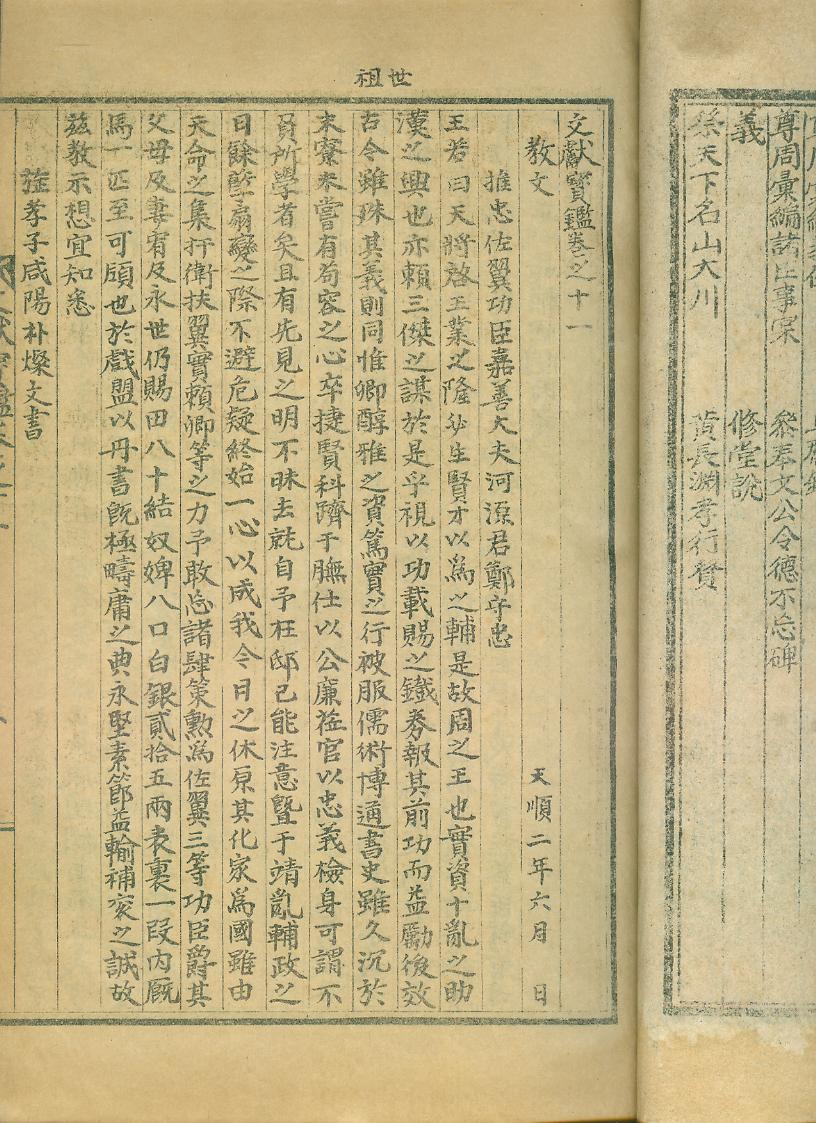 尊周彙編諸臣事宲 黎奉文公令德不忘碑
義 修堂說
祭天下名山大川 黃長淵孝行贊
世祖
文獻寶鑑卷之十一
教文 天順二年六月 日
推忠佐翼功臣嘉善大夫河源君鄭守忠
王若曰天將啓王業之隆必生賢才以爲之輔是故周之王也實資十亂之助
漢之興也亦賴三傑之謀於是乎視以功載賜之鐵券報其前功而益勵後效
古今雖殊其義則同惟卿醇雅之資篤實之行被服儒術博通書史雖久沉於
末寮未嘗有苟容之心卒捷賢科躋于膴仕以公廉莅官以忠義檢身可謂不
負所學者矣且有先見之明不昧去就自予在邸已能注意曁于靖亂輔政之
日餘孼扇變之際不避危疑終始一心以成我今日之休原其化家爲國雖由
天命之集扞衛扶翼實賴卿等之力予敢忘諸肆策勲爲佐翼三等功臣爵其
父母及妻宥及永世仍賜田八十結奴婢八口白銀貳拾五兩表裏一段內廐
馬一匹至可頎也於戲盟以丹書旣極疇庸之典永堅素節益輸補袞之誠故
玆敎示想宜知悉
旌孝子咸陽朴燦文書